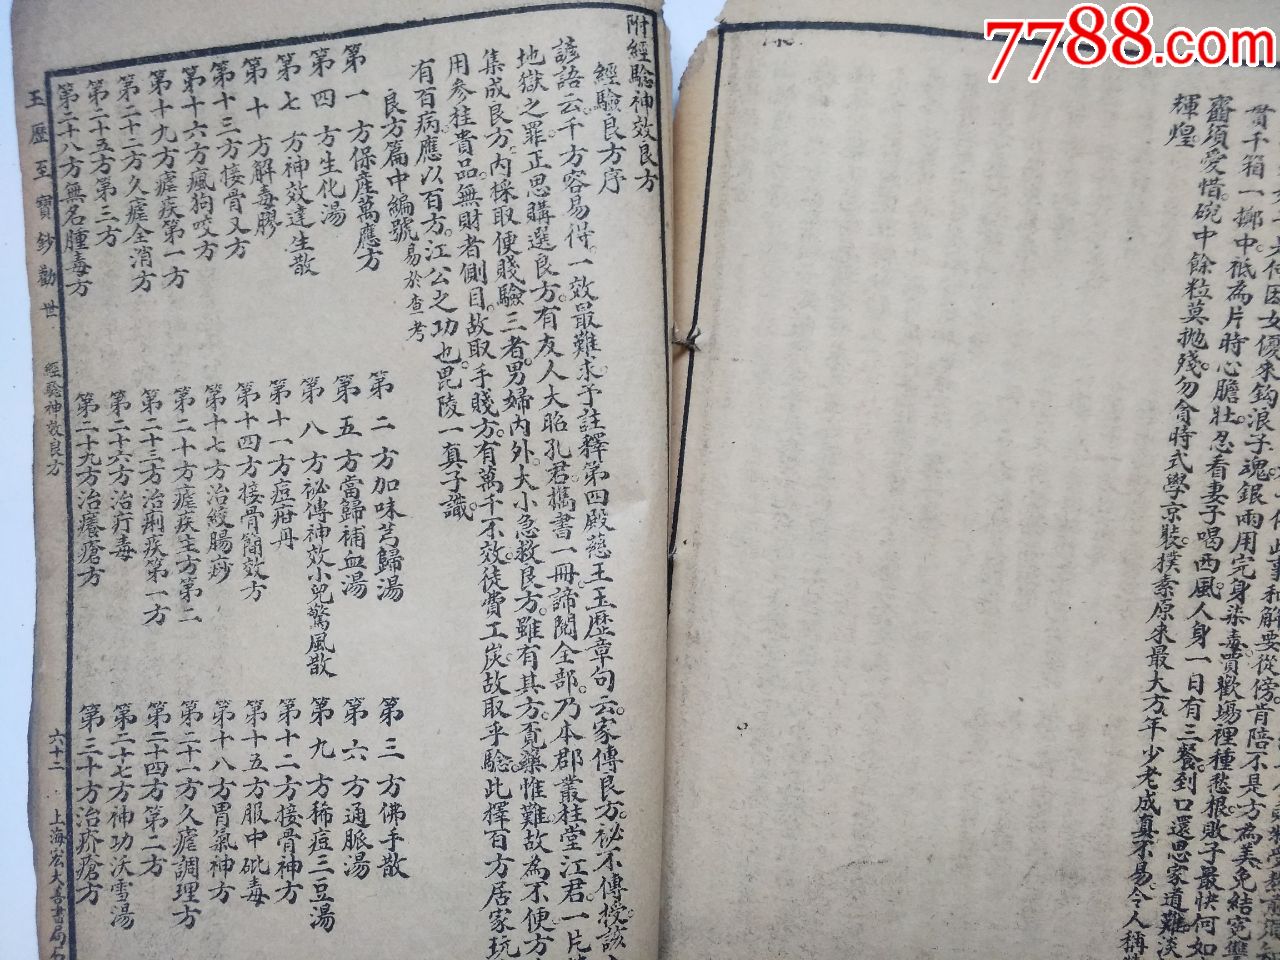 7788.com
貫千箱一擲中祗為片時心膽壯忍看妻子喝西風人身一日有三餐到口還思家道難淡
齏須愛惜碗中餘粒莫拋殘勿貪時式學京裝樸素原來最大方年少老成真不易令人稱
輝煌
附經驗神效良方
經驗良方序
諺語云千方容易得一效最難求予註釋第四殿慈王玉歷章句云家傳良方祕不傳授該
地獄之罪正思購選良方有友人大昭孔君攜書一冊諦閱全部乃本郡叢桂堂江君一片
集成良方內採取便賤驗三者男婦內外大小急救良方雖有其方覓藥惟難故為不便方
用參桂貴品無財者側目故取乎賤方有萬千不效徒費工炭故取乎驗此擇百方居家玩
有百病應以百方江公之功也毘陵一真子識
良方篇中編號易於查考
第一方保產萬應方
第二方加味芎歸湯
第三方佛手散
第四方生化湯
第五方當歸補血湯
第六方通脈湯
第七方神效達生散
第八方祕傳神效小兒驚風散
第九方稀痘三豆湯
第十方解毒膠
第十一方痘疳丹
第十二方接骨神方
第十三方接骨又方
第十四方接骨簡效方
第十五方服中砒毒
第十六方瘋狗咬方
第十七方治絞腸痧
第十八方胃氣神方
第十九方瘧疾第一方
第二十方瘧疾主方第二
第二十一方久瘧調理方
第二十二方久瘧全消方
第二十三方治痢疾第一方
第二十四方第二方
第二十五方第三方
第二十六方治疔毒
第二十七方神功沃雪湯
第二十八方無名腫毒方
第二十九方治癢瘡方
第三十方治疥瘡方
玉歷至寶鈔勸世
經驗神效良方
六十二
上海宏大善書局石